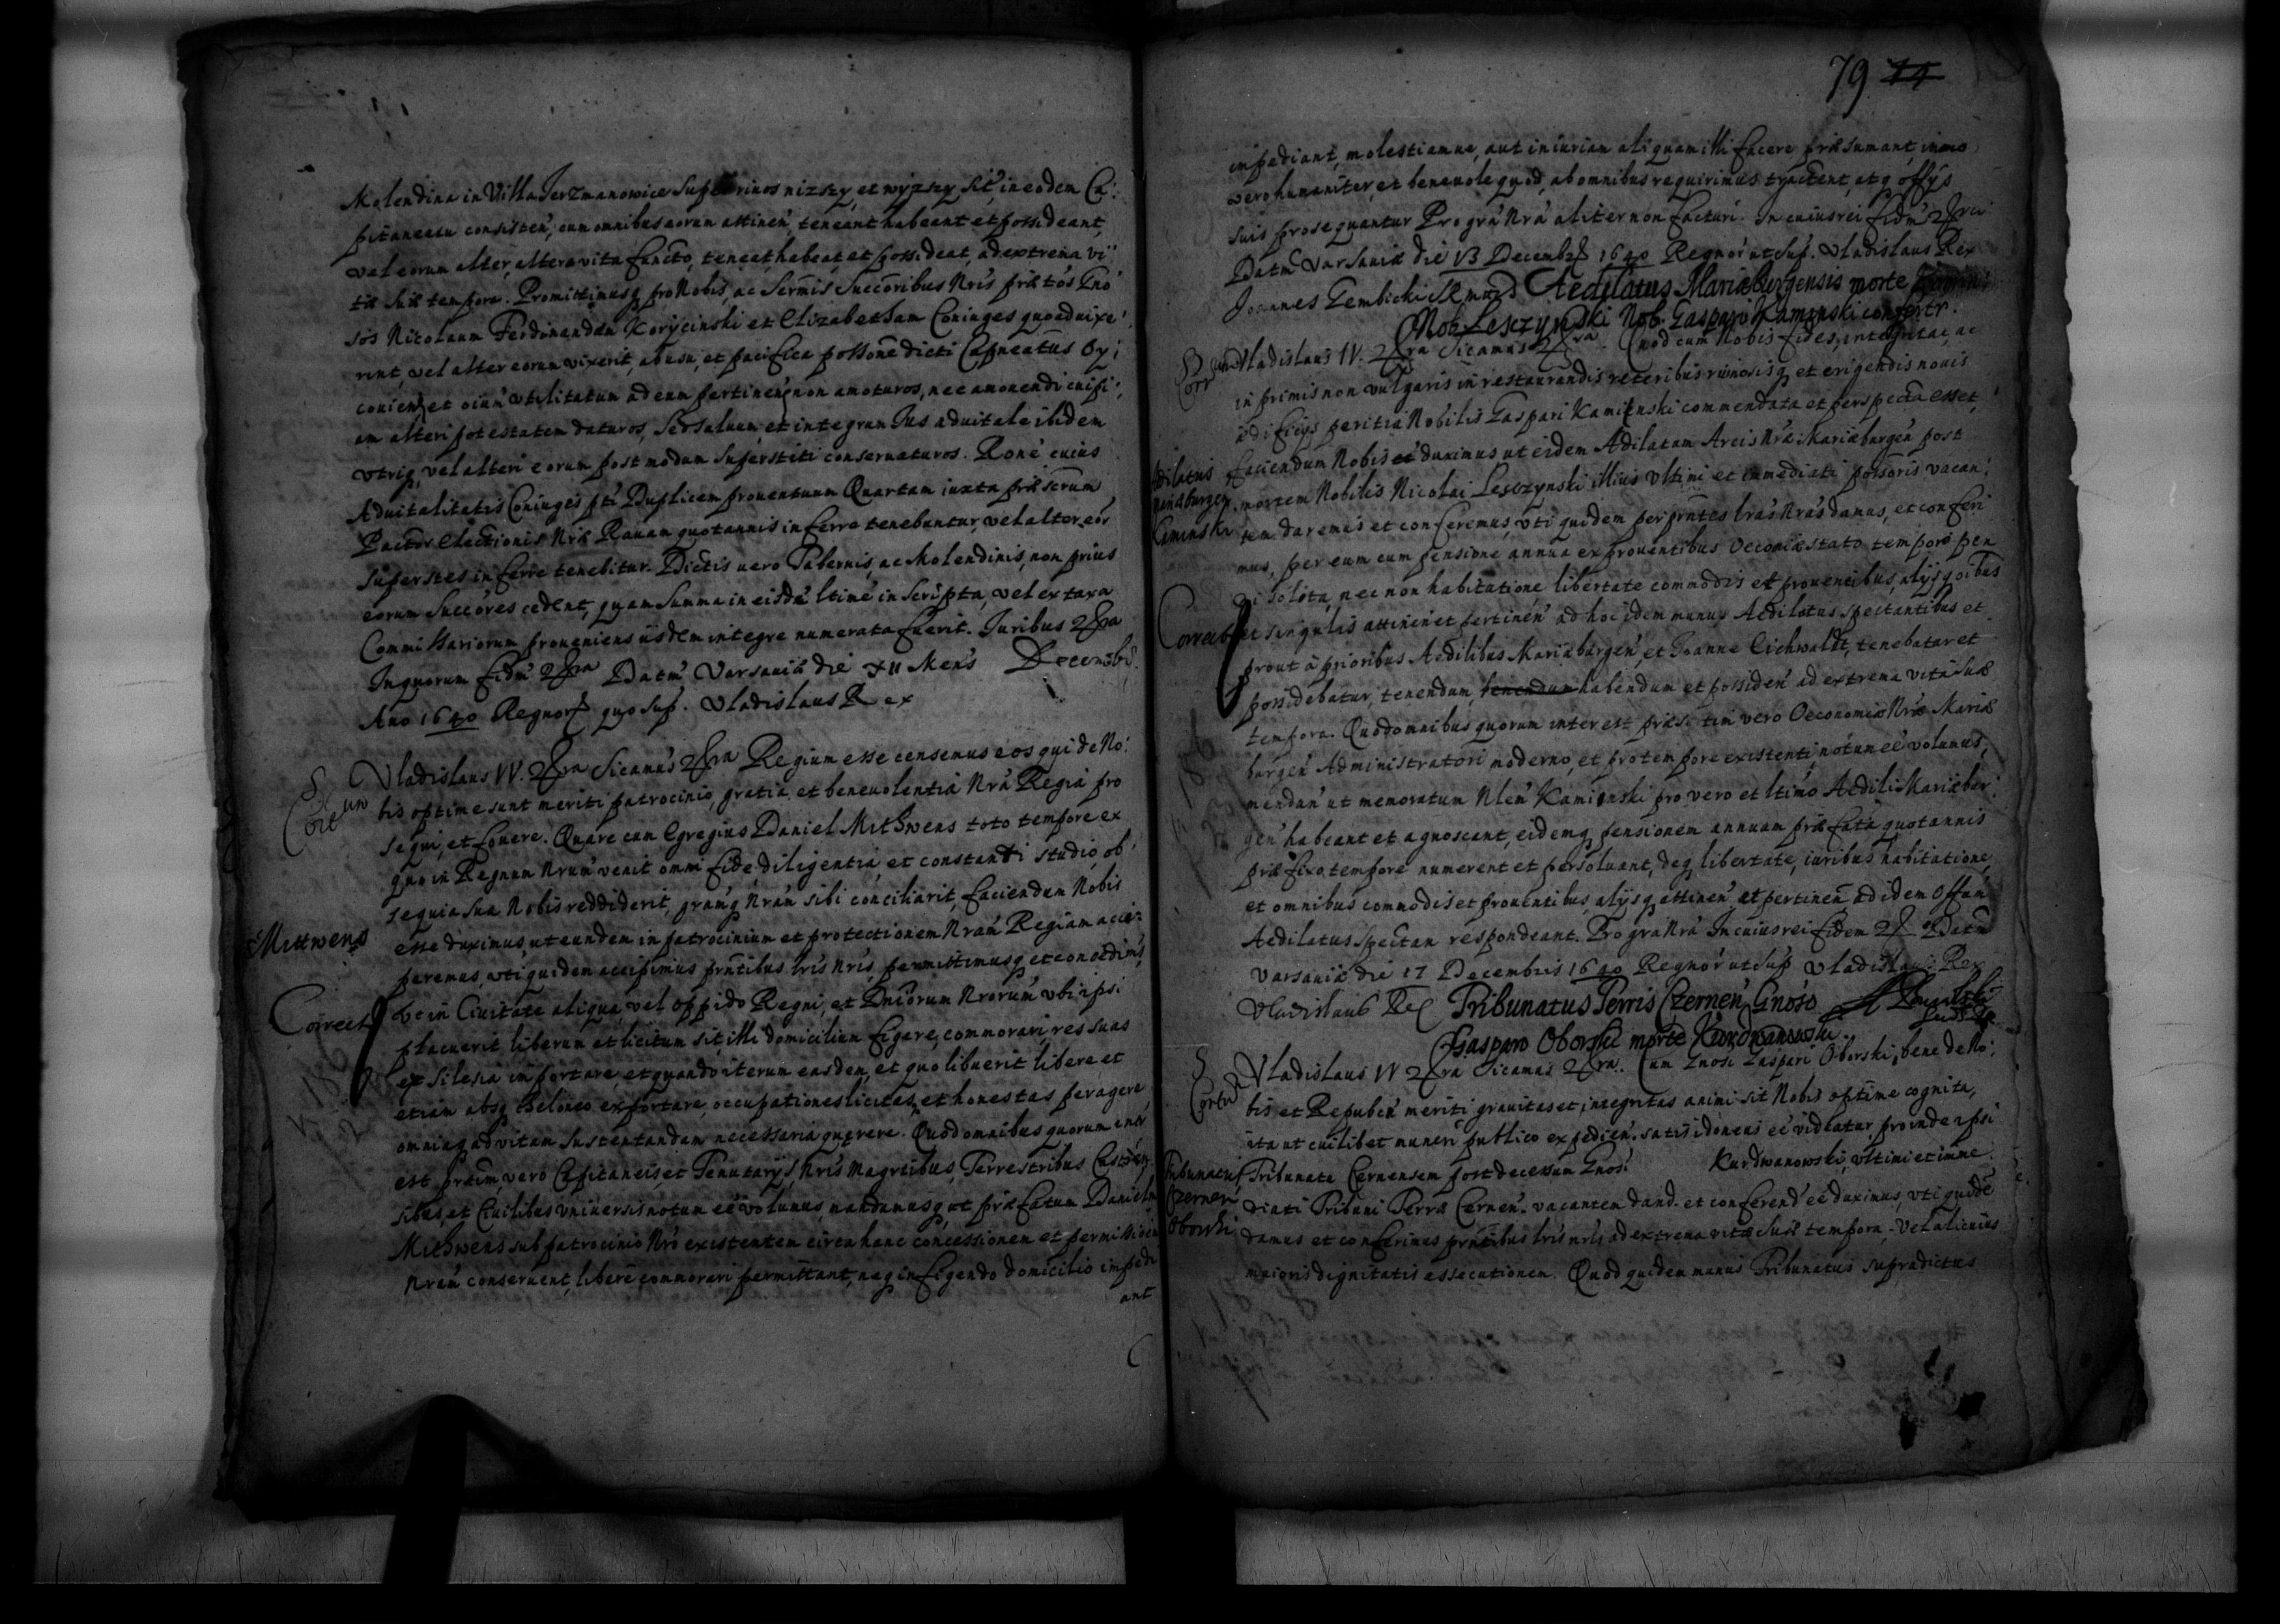 Molendina in Villa Jerzmanowice superinos nizszy, et wyzszy sit, in eodem Ca:
pitaneatu consisten, cum omnibus eorum attinen, teneant habeant et possideant,
vel eorum alter, altero vita functo, teneat, habeat, et possideat, ad extrema vi:
tæ suæ tempora. Promittimusq pro Nobis, ac Sermis Succoribus Nris præ tos Gno
sos Nicolaum Ferdinandum Korycinski et Elizabetham Coniuges quoad vixe
rint, vel alter eorum vixerit, ab usu, et pacifica possone dicti Capneatus
et oium utilitatum ad eum pertinen non amoturos, nec amovendi cuipi:
am alteri potestatem daturos, Sed salvum, et integrum Jus advitale ibidem
utriq, vel alteri eorum post modum superstiti conservaturos. Rone cuius
Advitalitatis Coniuges pti Duplicem proventuum Quartam iuxta præscrum
Pactor Electionis Nræ Ravam quotannis inferre tenebuntur, vel alter eor
superstes inferre tenebitur. Dictis vero Tabernis, ac Molendinis, non prius
eorum Succores cedent, quam Summa in eisdem ltime inscripta, vel ex taxa
Commissariorum proveniens iisdem integre numerata fuerit. Juribus
In quorum fidm Datm Varsaviæ die XII Mens Decembris
Ano 1640 Regnor quo sup. Vladislaus Rex
Vladislaus IV. Sicamus Regium esse censemus eos qui de No:
bis optime sunt meriti patrocinio, gratia et benevolentia Nra Regia pro
sequi, et fovere. Quare cum Egregius Daniel Mithwens toto tempore ex
quo in Regnum Nrum venit omni fide, diligentia, et constanti studio, ob
sequia sua Nobis reddiderit, gramq Nram sibi conciliarit, faciendum Nobis
Mittwens
esse duximus, ut eundem in patrocinium et protectionem Nram Regiam acci:
peremus, uti quidem accipimus prntibus lris Nris, permittimusq et concedims,
Correct
ut in Civitate aliqua, vel oppido Regni, et Dniorum Nrorum ubi ipsi
placuerit, liberum et licitum sit, illi domicilium figere, commorari, res suas
ex Silesia importare et quando iterum easdem, et quo libuerit libere, et
etiam absq theloneo exportare, occupationes licitas, et honestas peragere,
omniaq ad vitam sustentandam necessaria quærere. Quod omnibus quorum inter
est prtim vero Capitaneis et Tenutarijs, Nris Magrtibus, Terrestribus Castren
sibus, et Civilibus universis notum ee volumus, mandamusq ut præfatum Danielem
Mithwens sub patrocinio Nro existentem circa hanc concessionem et permissionem
Nram conservent, libere commorari permittant, neq in figendo domicilio impedi
ant
79 74
impediant, molestiamve, aut iniuriam aliquam illi facere præsumant, immo
vero humaniter, et benevole quod, ab omnibus requirimus tractent, atq offijs
suis prosequantur Pro gra Nra aliter non facturi. In cuius rei fidm
Datm Varsaviæ die 13 Decembr 1640 Regnor ut sup. Vladislaus Rex
Joannes Gembicki Aedilatus Mariæburgensis morte
Nob Lesczynski Nob. Gasparo Kaminski confertr.
Vladislaus IV. Sicamus Quod cum Nobis fides, integritas, ac
in primis non vulgaris in restaurandis veteribus ruinosisq et erigendis novis
ædificijs peritia Nobilis Gaspari Kaminski commendata et perspecta esset,
Ædilatus Mariæburgen Kaminski
faciendum Nobis duximus ut eidem Ædilatum Arcis Nræ Mariæburgen post
mortem Nobilis Nicolai Lesczynski illius ultimi et immediati possoris vacan:
tem daremus et conferemus, uti quidem per prntes lras Nras damus, et conferi
mus, per eum cum pensione annua ex proventibus Oeconiæ stato tempore pen
di solita, nec non habitatione libertate commodis et proventibus, alijsq oibus
Correct
et singulis attinen et pertinen ad hoc idem munus Aedilatus spectantibus et
prout à prioribus Aedilibus Mariæburgen, et Joanne Eichwaldt, tenebatur et
possidebatur, tenendum, tenendum habendum et possiden ad extrema vitæ suæ
tempora. Quod omnibus quorum interest præsertim vero Oeconomiæ Nræ Mariæ
burgen Administratori moderno, et pro tempore existenti, notum ee volumus,
mandan ut memoratum Nlem Kaminski pro vero et ltimo Aedili Mariæbur
gen habeant et agnoscant, eidemq pensionem annuam præfatã quotannis
præfixo tempore numerent et persolvant, deq, libertate, iuribus habitatione,
et omnibus commodis et proventibus, alijsq attinen et pertinen ad idem Offum
Aedilatus spectan respondeant. Pro gra Nra In cuius rei fidem Datm
Varsaviæ die 17 Decembris 1640 Regnor ut sup Vladislaus Rex
Vladislaus Rex Tribunatus Terris Czernen Gnoso
Gasparo Oborski morte Kurdwanowski
Vladislaus IV Sicamus Cum Gnosi Gaspari Oborski, bene de No:
bis et Repuben meriti gravitas et, integritas animi sit Nobis optime cognita,
ita ut cuilibet muneri publico expedien satis idoneus ee videatur, proinde ipsi
Tribunatus Czernen Oborski
Tribunatũ Cernensem post decessum Gnosi Kurdwanowski, ultimi et imme
diati Tribuni Terræ Cernen. vacantem dand. et conferend ee duximus, uti quidẽ
damus et conferimus prntibus lris nris ad extrema vitæ suæ tempora, vel alicuius
maioris dignitatis assecutionem. Quod quidem munus Tribunatus supradictus